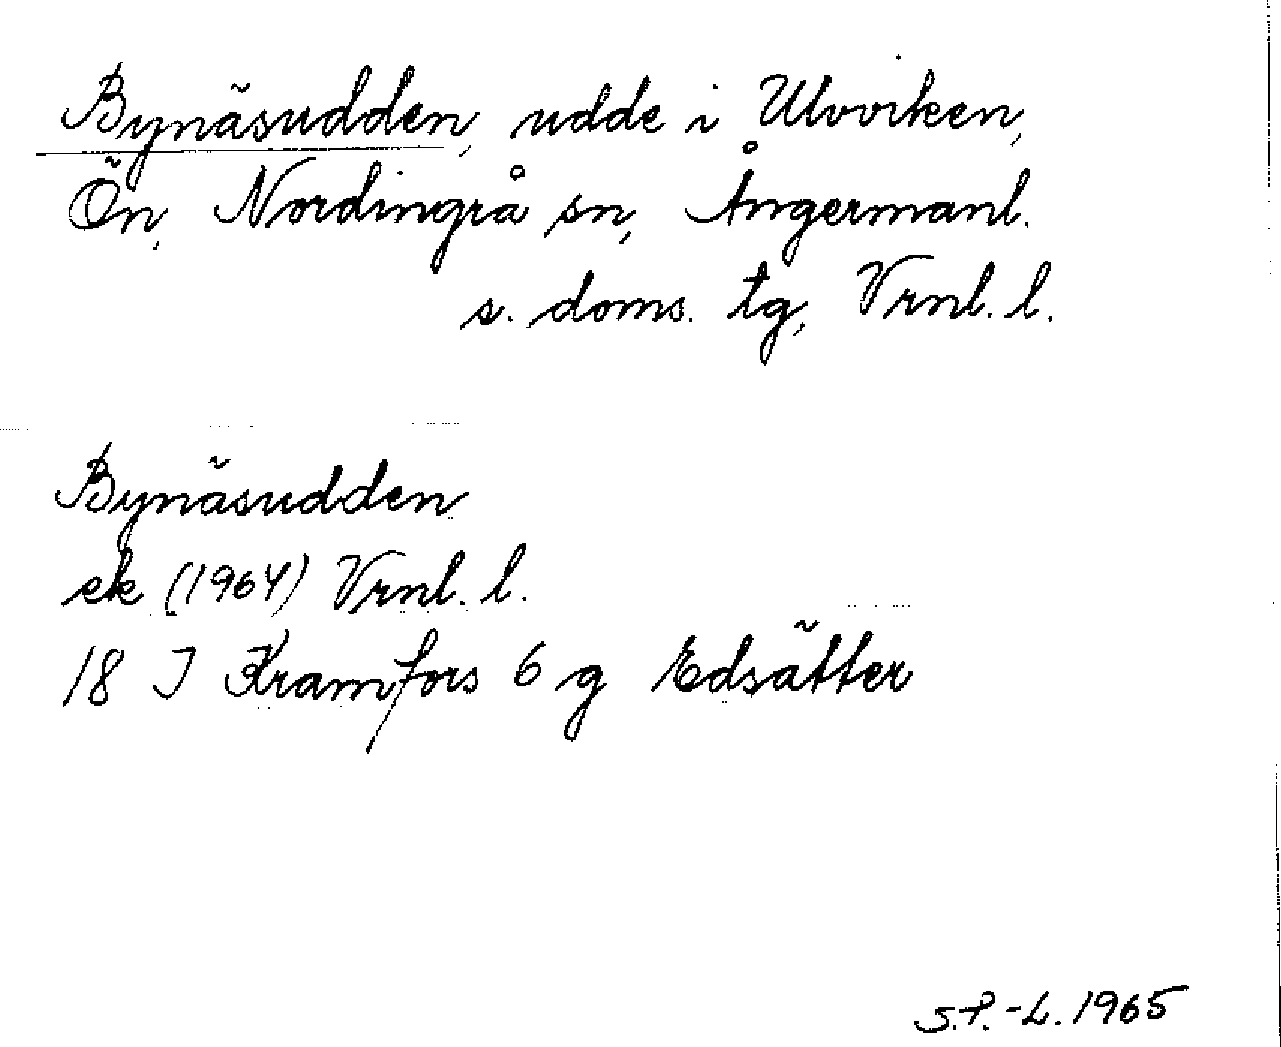 Bynäsudden, udde i Ulvviken,
Ön, Nordingrå sn, Ångermanl.
s. doms. tg, Vrnl. l.
Bynäsudden
ek (1964) Vrnl. l.
18 I Kramfors 6 g Edsätter
S.P.-L. 1965